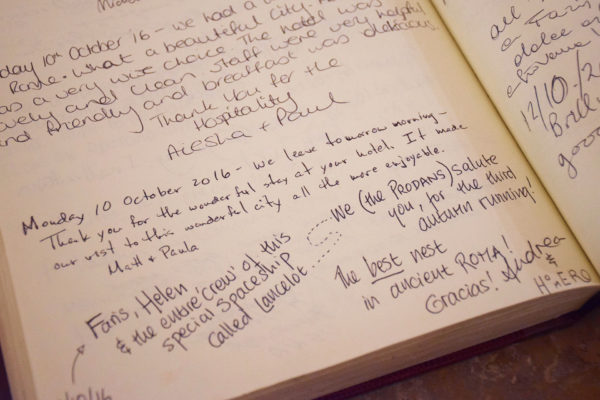 day 10th October '16 - we had a
Rome. What a beautiful city. The hotel was
as a very wise choice. The hotel was
lovely and clean, staff were very helpful
and friendly and breakfast was delicious.
Thank You for the
Hospitality
Aiesha + Paul
Monday 10 October 2016 - we leave tomorrow morning -
Thank you for the wonderful stay at your hotel. It made
our visit to this wonderful city all the more enjoyable.
Matt & Paula
Faris, Helen
& the entire 'crew' of this
special spaceship
called Lancelot
We (the PRODANS) salute
you, for the third
autumn running!
The best nest
in ancient ROMA!
Gracias! Andrea
&
HOMERO
/10/16
all
12/10/20
Brill
good